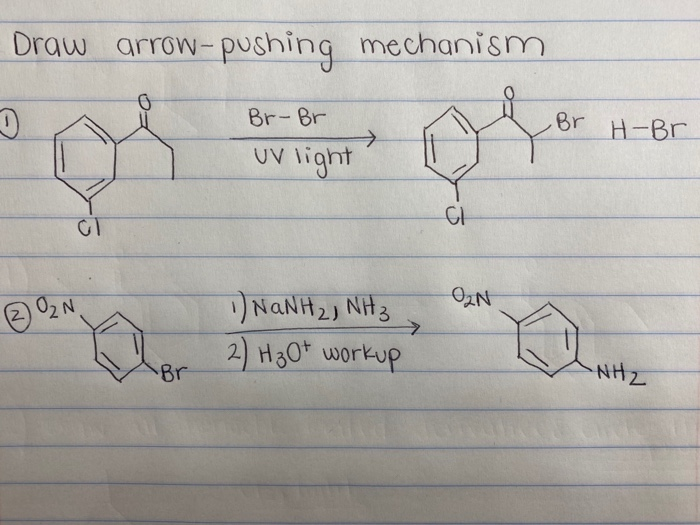 Draw arrow-pushing mechanism
①
O
Cl
Br-Br
UV light
O
Br
Cl
H-Br
②
O₂N
Br
1) NaNH₂, NH₃
2) H₃O⁺ workup
O₂N
NH₂